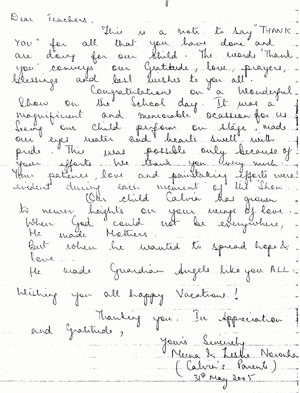 Dear Teachers,
This is a note to say "THANK
YOU" for all that you have done and
are doing for our child. The words "Thank
you" conveys our Gratitude, love, prayers,
blessings and best wishes to you all.
Congratulations on a Wonderful
Show on the School day. It was a
magnificent and memorable ocassion for us
Seeing our child perform on stage, made
our eyes water and hearts swell with
pride. This was possible only because of
your efforts. We thank you very much.
Your patience, love and painstaking efforts were
evident during each moment of the Show.
Our child Calvin has grown
to newer heights on your wings of love.
When God could not be everywhere,
He made Mothers.
But when he wanted to spread hope &
love...
He made Guardian Angels like you ALL.
Wishing you all happy Vacations!
Thanking you. In Appreciation
and Gratitude,
Yours Sincerely
Meena & Leslie
(Calvin's Parents)
31st May 2005